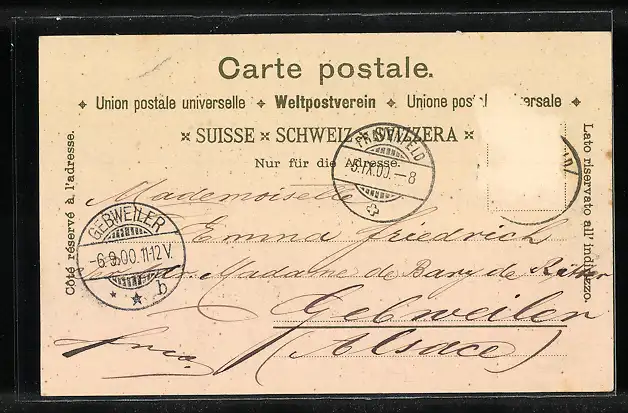 Carte postale.
Union postale universelle Weltpostverein Unione pos ersale
SUISSE × SCHWEIZ × SVIZZERA
Nur für die Adresse.
Côté réservé à l'adresse.
Lato riservato all'indirizzo.
FRAUENFELD
5.IX.00.–8
GEBWEILER
-6.9.00.11-12V.
b
Mademoiselle
Emma Friedrich
Madame de Bary de
Gebweiler
(Alsace)